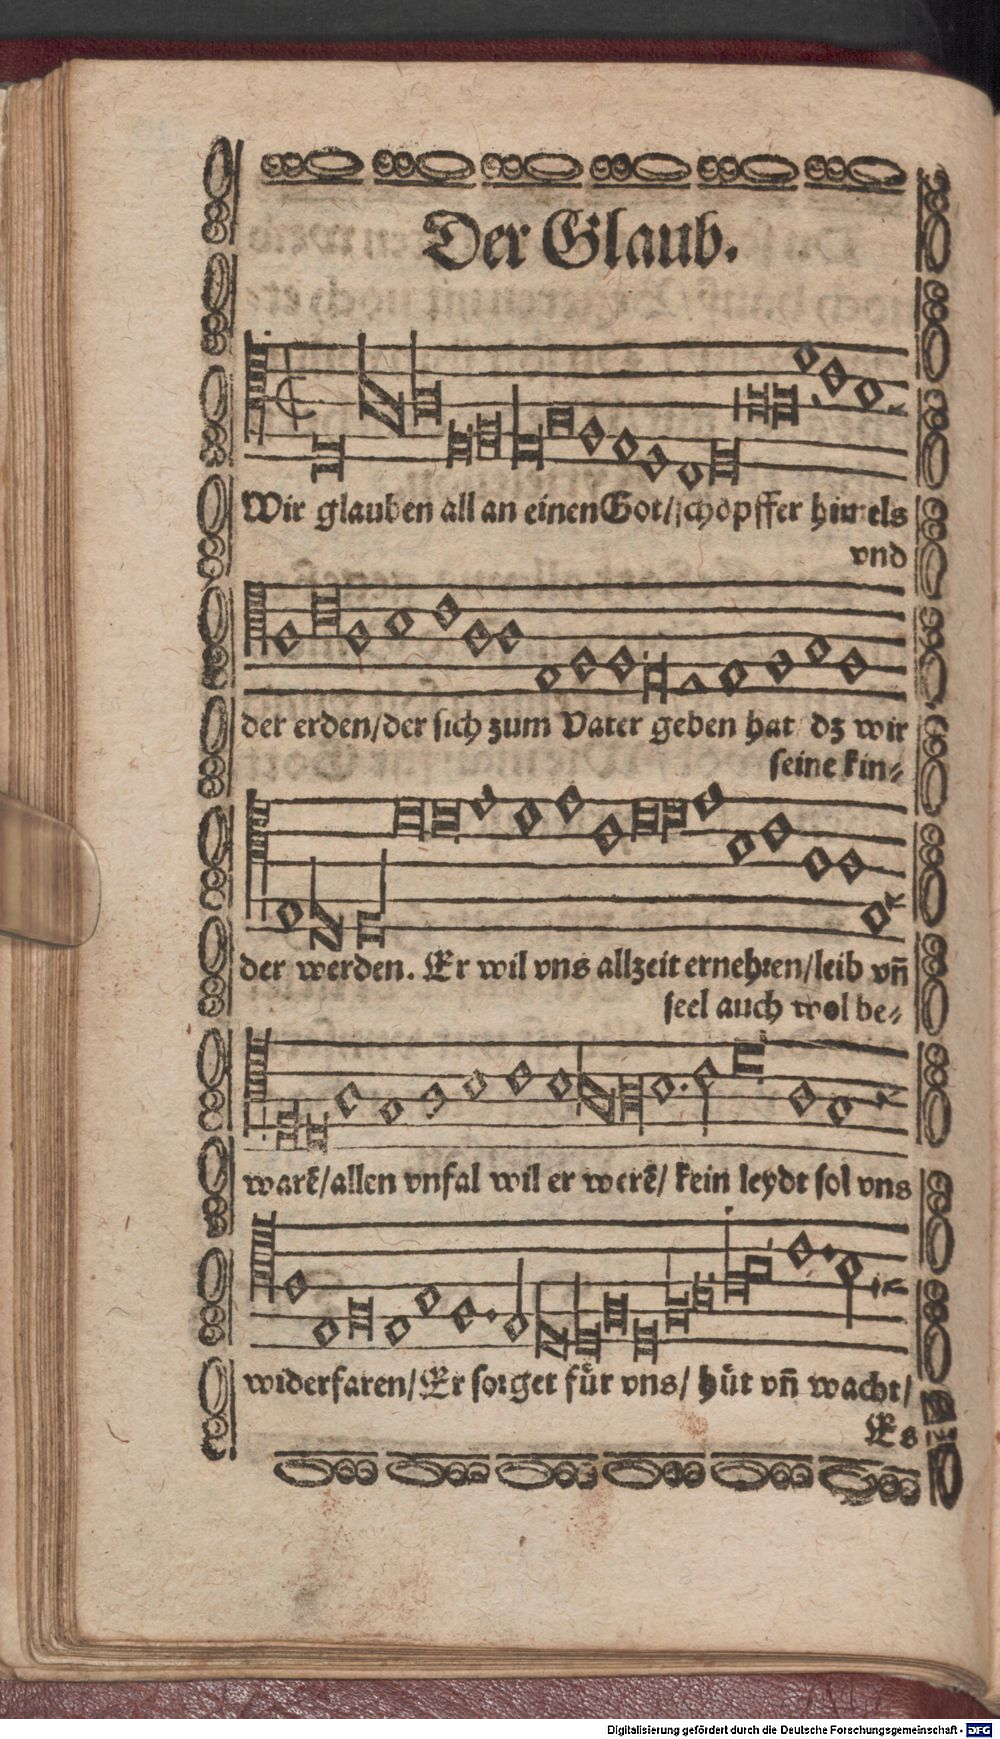 Der Glaub.
Wir glauben all an einen Got/schöpffer himels
vnd
der erden/der sich zum Vater geben hat/dz wir
seine kin⸗
der werden. Er wil vns allzeit ernehren/leib vñ
seel auch wol be⸗
warē/allen vnfal wil er werē/ kein leydt sol vns
widerfaren/Er sorget für vns/ hüt vñ wacht/
Es
Digitalisierung gefördert durch die Deutsche Forschungsgemeinschaft - DFG